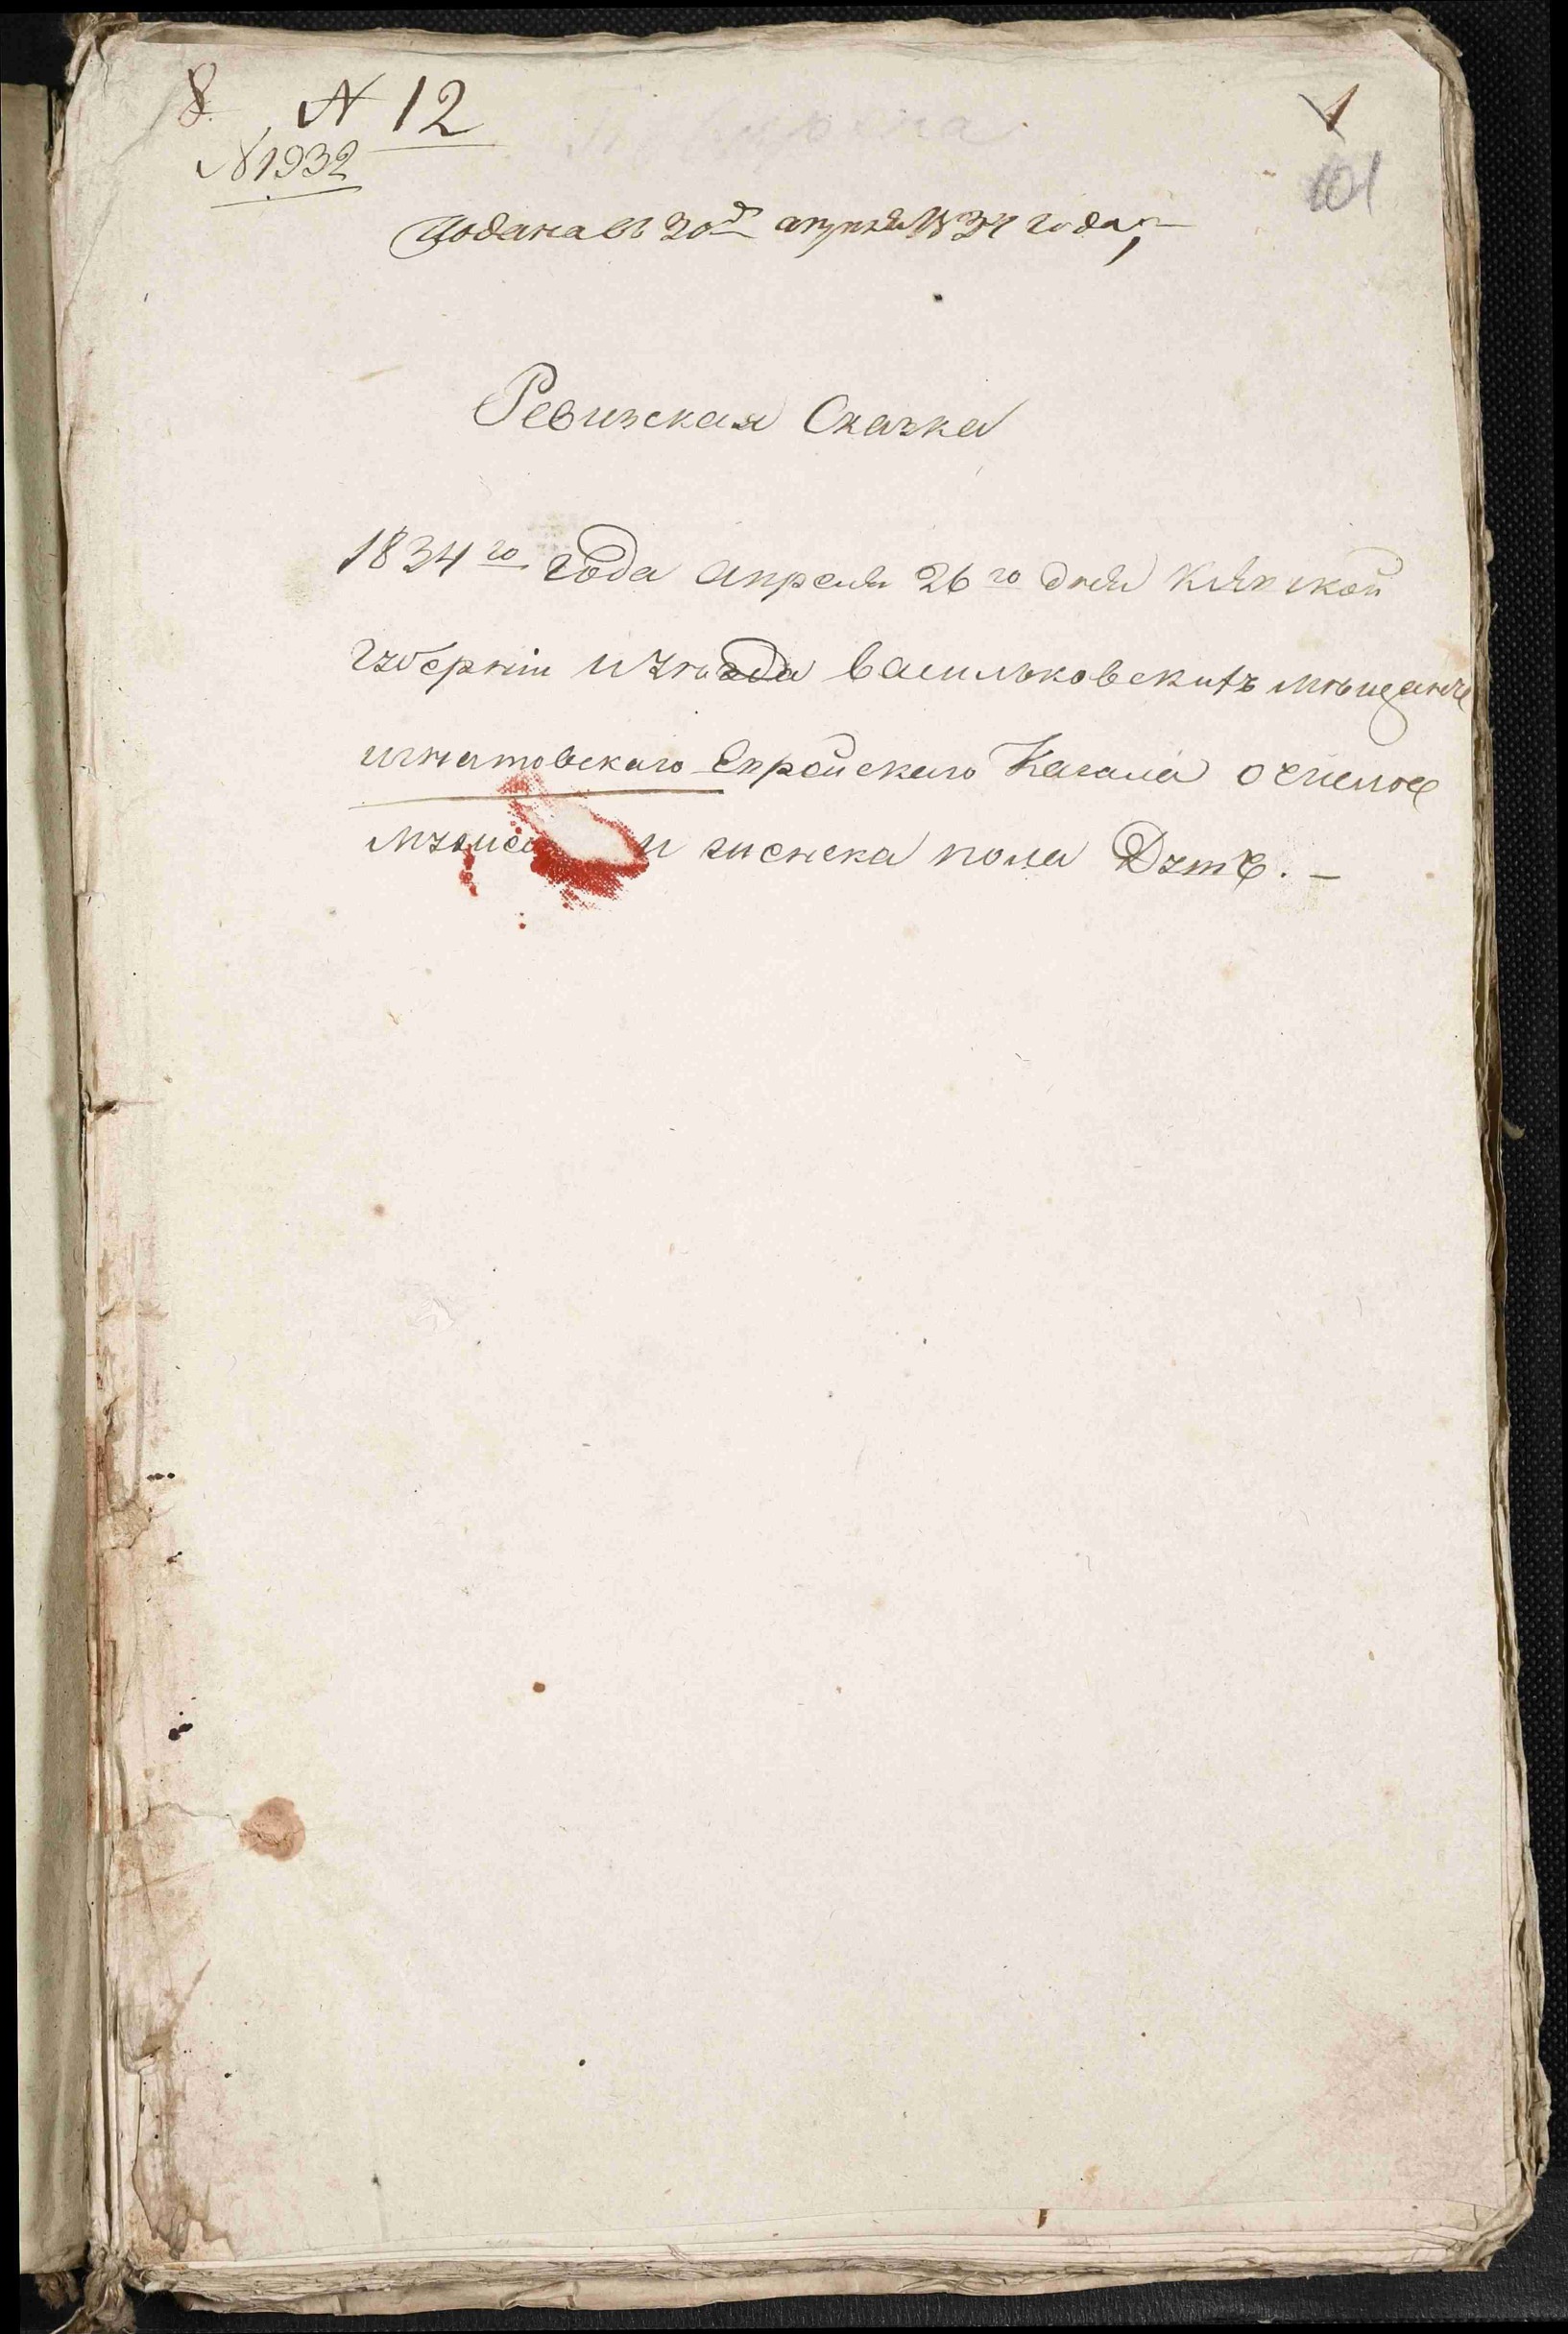 8.
N 12
N 1932
101
Подана въ 30д апреля 1834 года,
Ревизская Сказка
1834го года апреля 26го дня Кіевской
губерніи уезда Васильковскихъ мѣщанъ
игнатовскаго Еврейскаго Кагала о числѣ
и женска пола Душъ. —